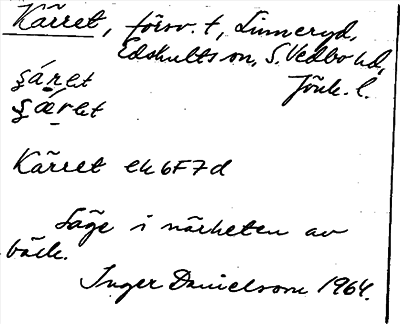 Kärret, försv. t, Linneryd,
Edshults sn, S. Vedbo hd,
Jönk. l.
şáret
şæ̀ret
Kärret ek 6F7d
Läge i närheten av
bäck.
Inger Danielsson 1964.